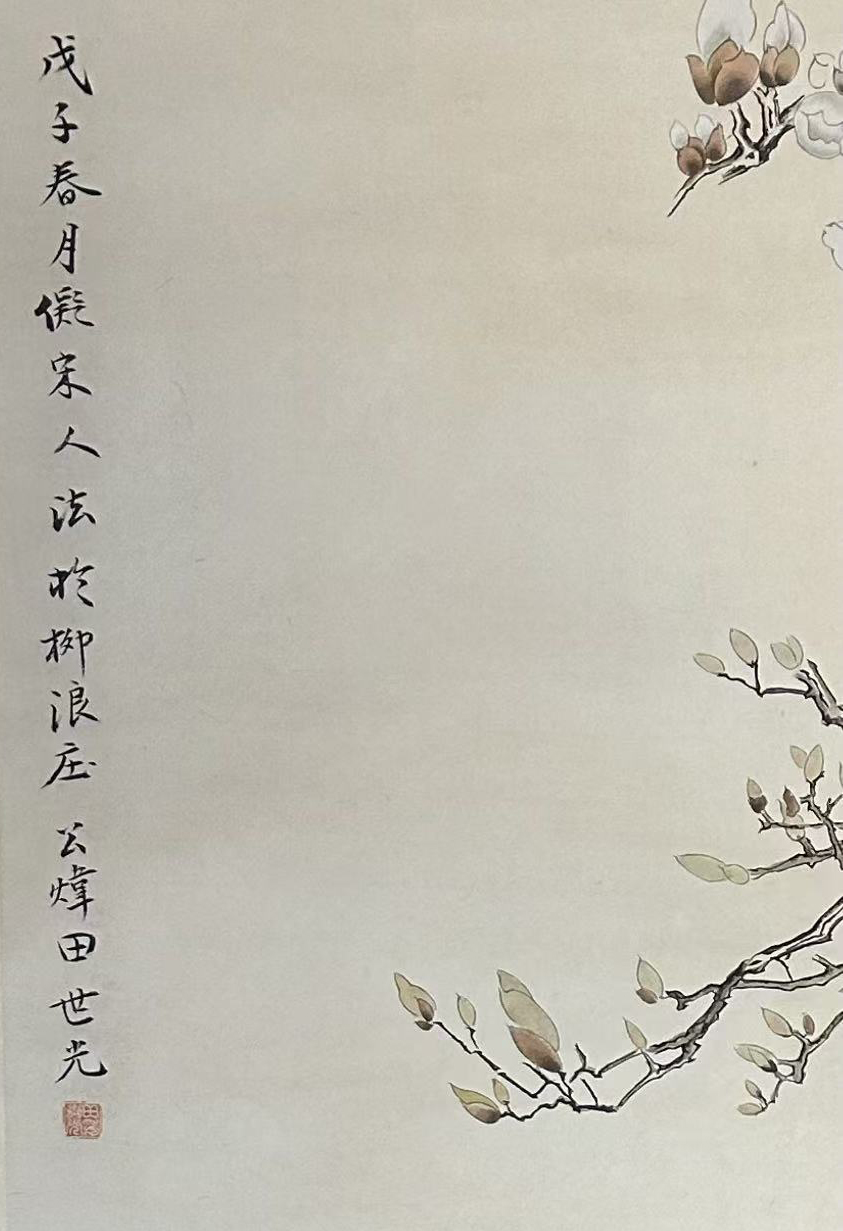 戊子春月儗宋人法於柳浪庄 公煒田世光